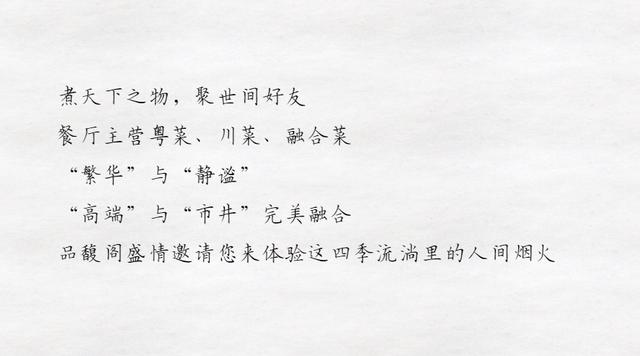 煮天下之物，聚世间好友
餐厅主营粤菜、川菜、融合菜
“繁华”与“静谧”
“高端”与“市井”完美融合
品馥阁盛情邀请您来体验这四季流淌里的人间烟火